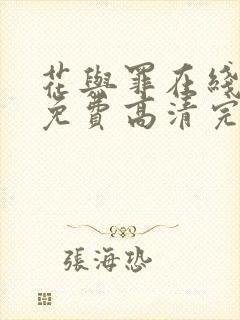 花與罪在綫
免費高清完
張海恐